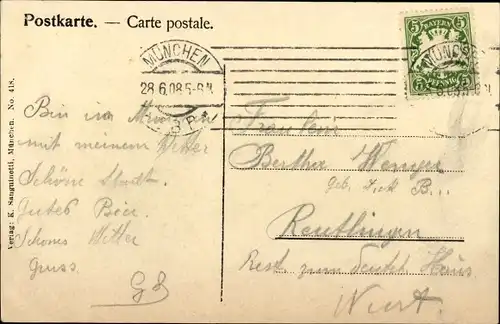 Postkarte. — Carte postale.
5 BAYERN 5
MÜNCHEN
28.6.08 5-6 N.
Bin in München
mit meinem Vetter
Schöne Stadt.
Gutes Bier.
Schönes Wetter
Gruss.
Fräulein
Bertha Wenger
Geb.
Reutlingen
Rest. zum Deutsch Haus
Württ.
Verlag: K. Sanguinetti, München. No. 418.